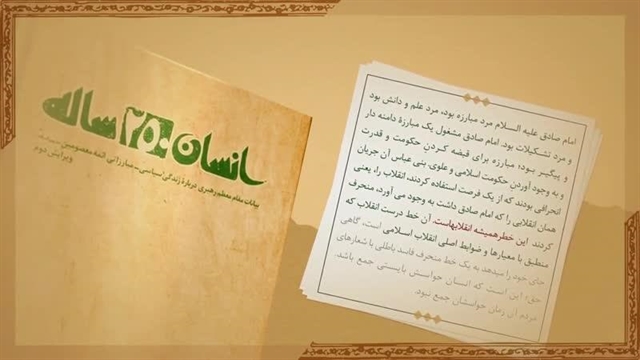 انسان ۲۵۰ ساله
بیانات مقام معظم رهبری درباره زندگی سیاسی - مبارزاتی ائمه معصومین
ویرایش دوم
امام صادق علیه السلام مرد مبارزه بود، مرد علم و دانش بود
و مرد تشکیلات بود. امام صادق مشغول یک مبارزهٔ دامنه دار
و پیگیر بود؛ مبارزه برای قبضه کردن حکومت و قدرت
و به وجود آوردن حکومت اسلامی و علوی. بنی عباس آن جریان
انحرافی بودند که از یک فرصت استفاده کردند، انقلاب را، یعنی
همان انقلابی را که امام صادق داشت به وجود می آورد، منحرف
کردند. این خطر همیشه انقلابهاست. آن خط درست انقلاب که
منطبق با معیارها و ضوابط اصلی انقلاب اسلامی است، گاهی
جای خود را میدهد به یک خط منحرف فاسد باطلی با شعارهای
حق، این است که انسان حواسش بایستی جمع باشد.
مردم آن زمان حواسشان جمع نبود.